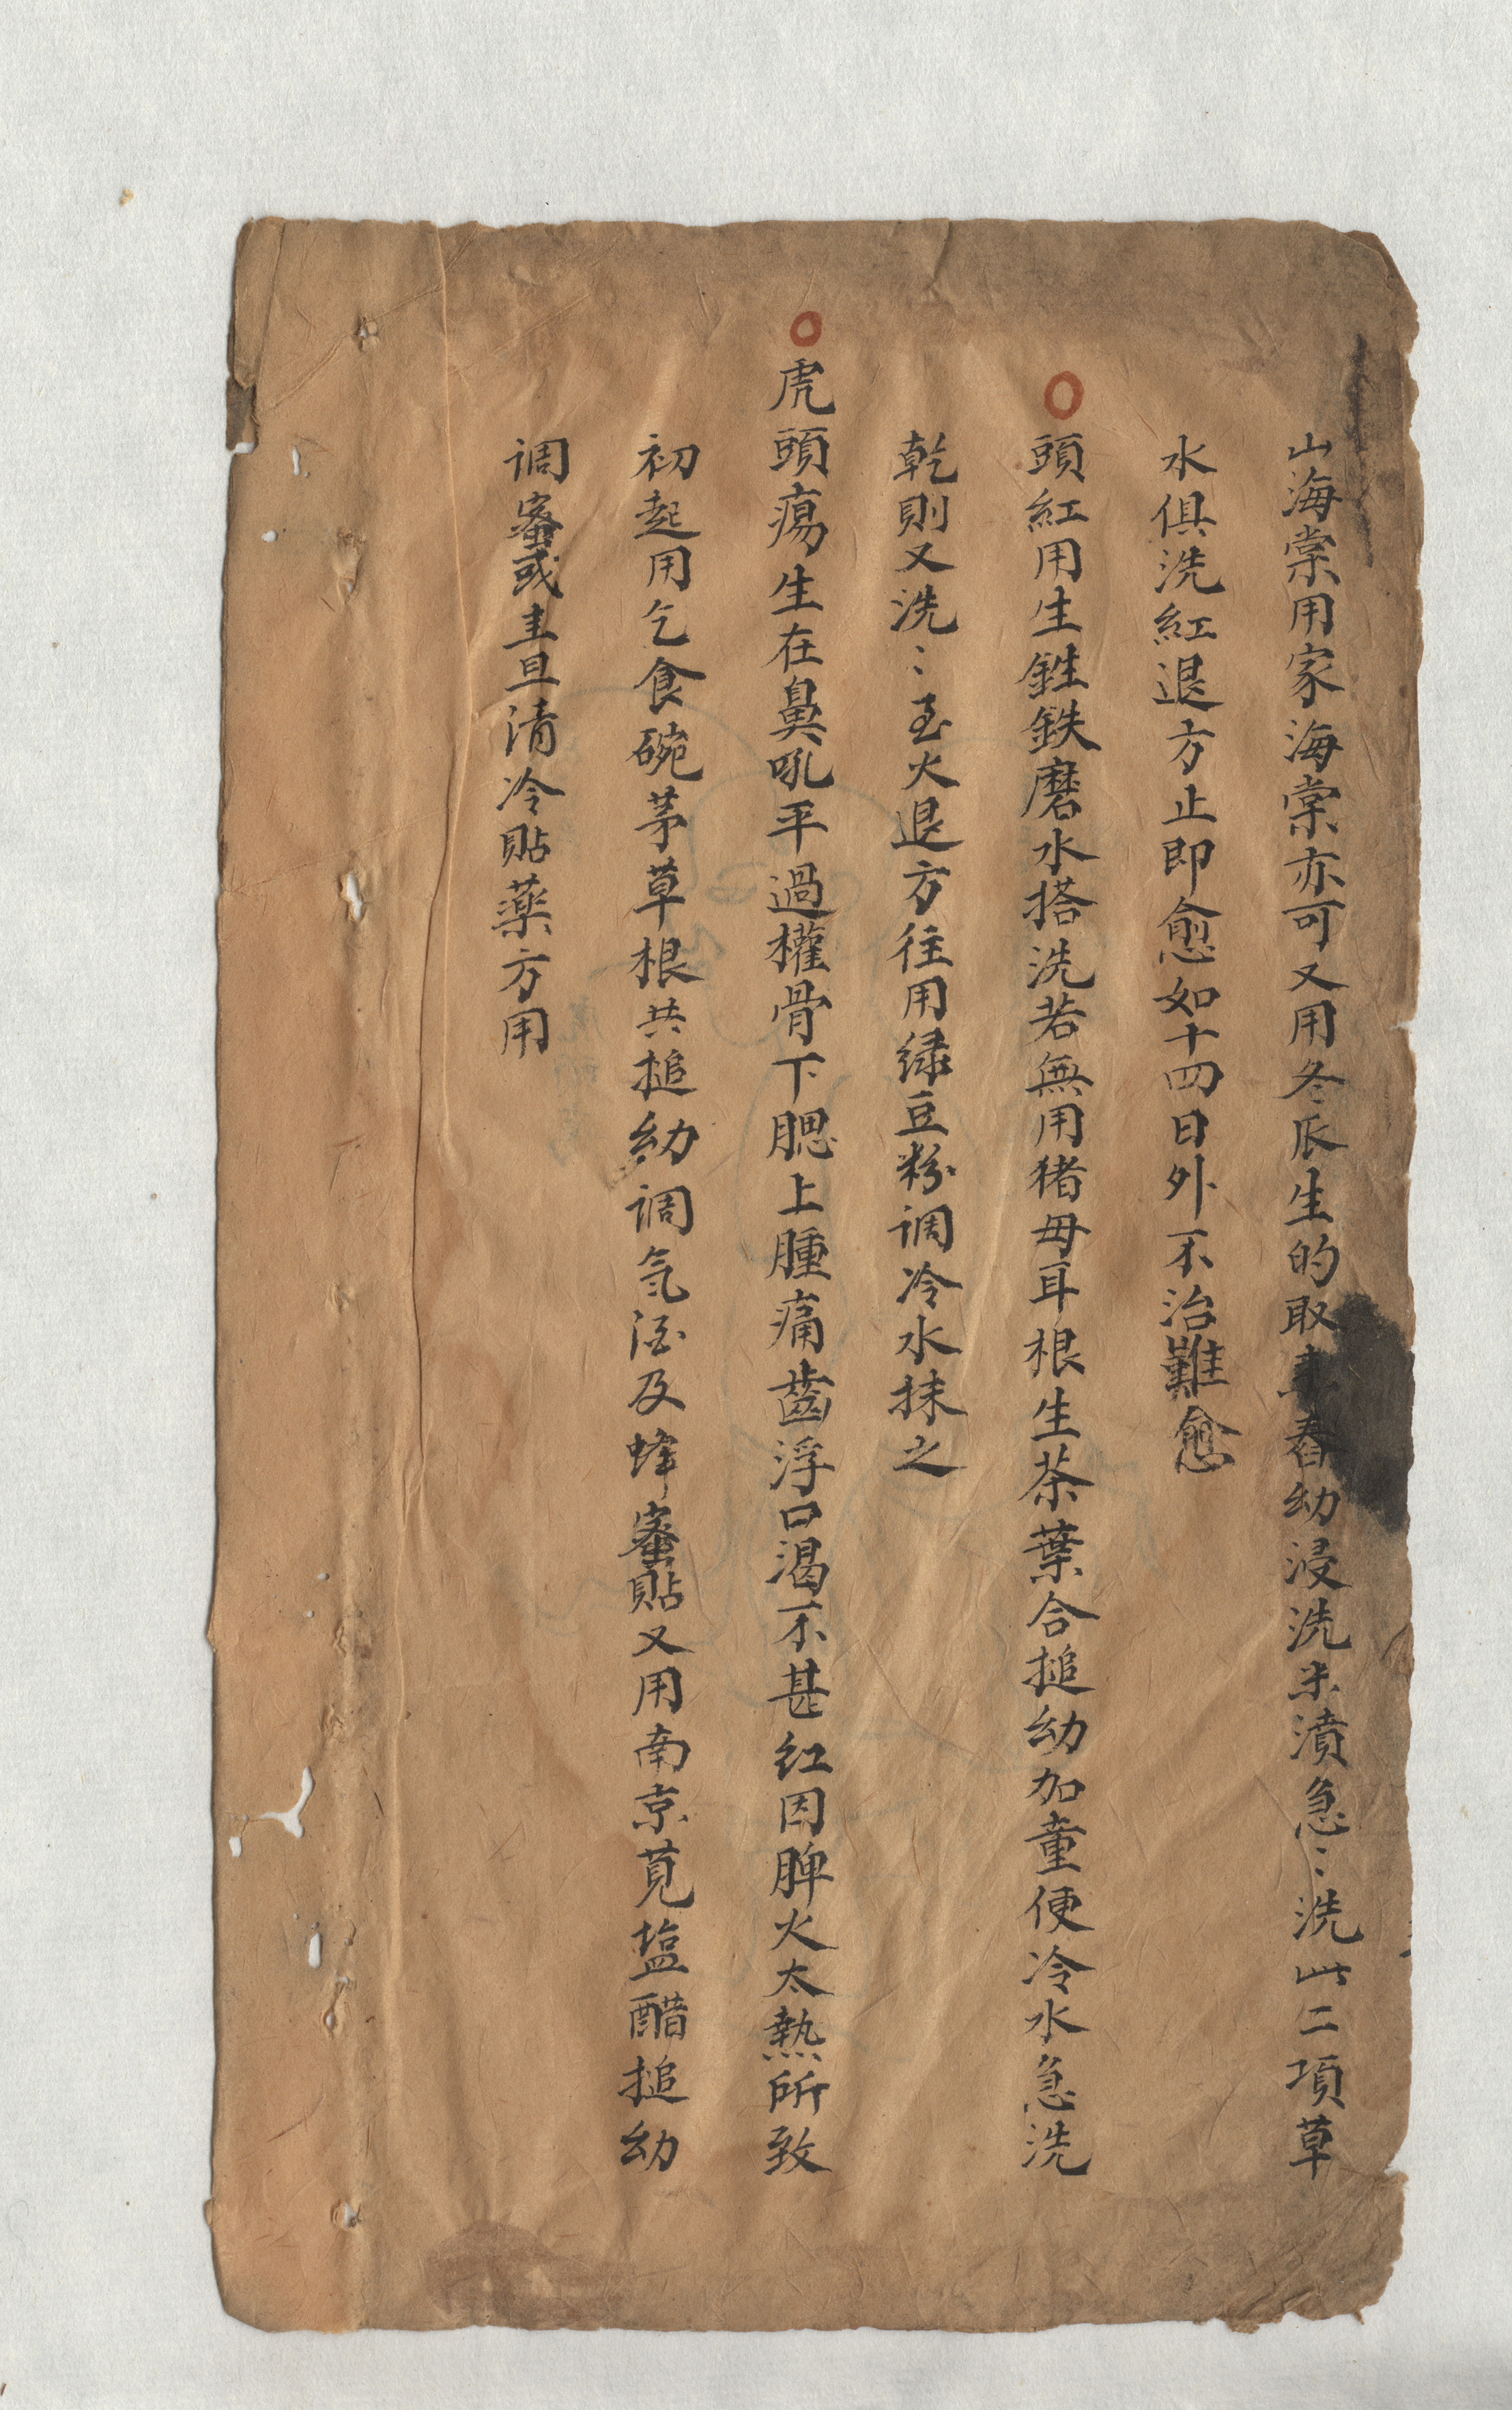 山海棠用家海棠亦可又用冬瓜生的取舂幼浸洗米濆急〻洗此二項草
水俱洗紅退方止即愈如十四日外不治難愈
○頭紅用生鉎鉄磨水搭洗若無用猪毋耳根生茶葉合搥幼加童便冷水急洗
乾則又洗〻至火退方往用绿豆粉调冷水抹之
○虎頭瘍生在鼻吼平過權骨下腮上腫痛齒浮口渴不甚红因脾火太熱所致
初起用乞食碗茅草根共搥幼调氙酒及蜂蜜貼又用南京莧塩醋搥幼
调蜜或圭旦清冷貼薬方用